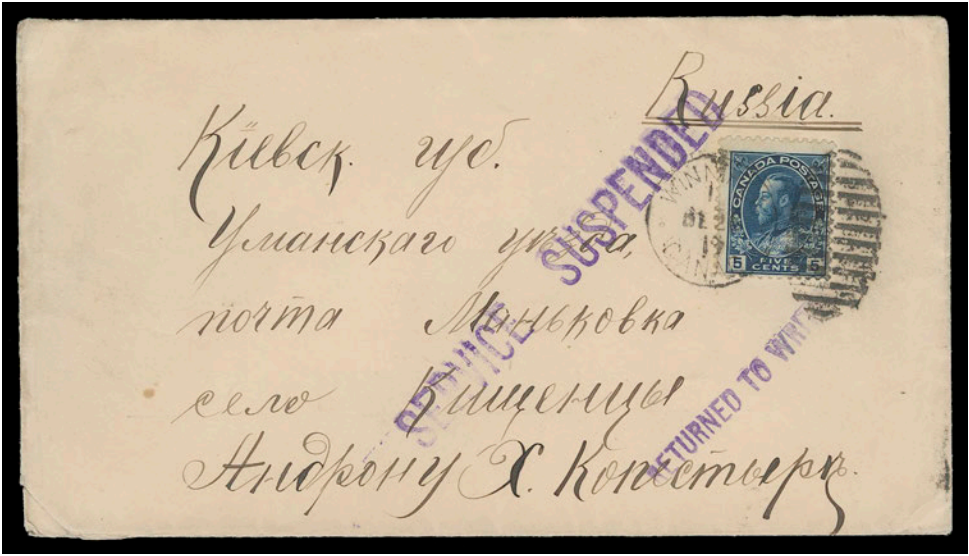 Russia.
Кіевск. губ.
Уманскаго уѣзда,
почта Маньковка
село Кищенцы
Андрону Х.
SERVICE SUSPENDED
RETURNED TO
CANADA POSTAGE
5 FIVE CENTS 5
WINN
CAN